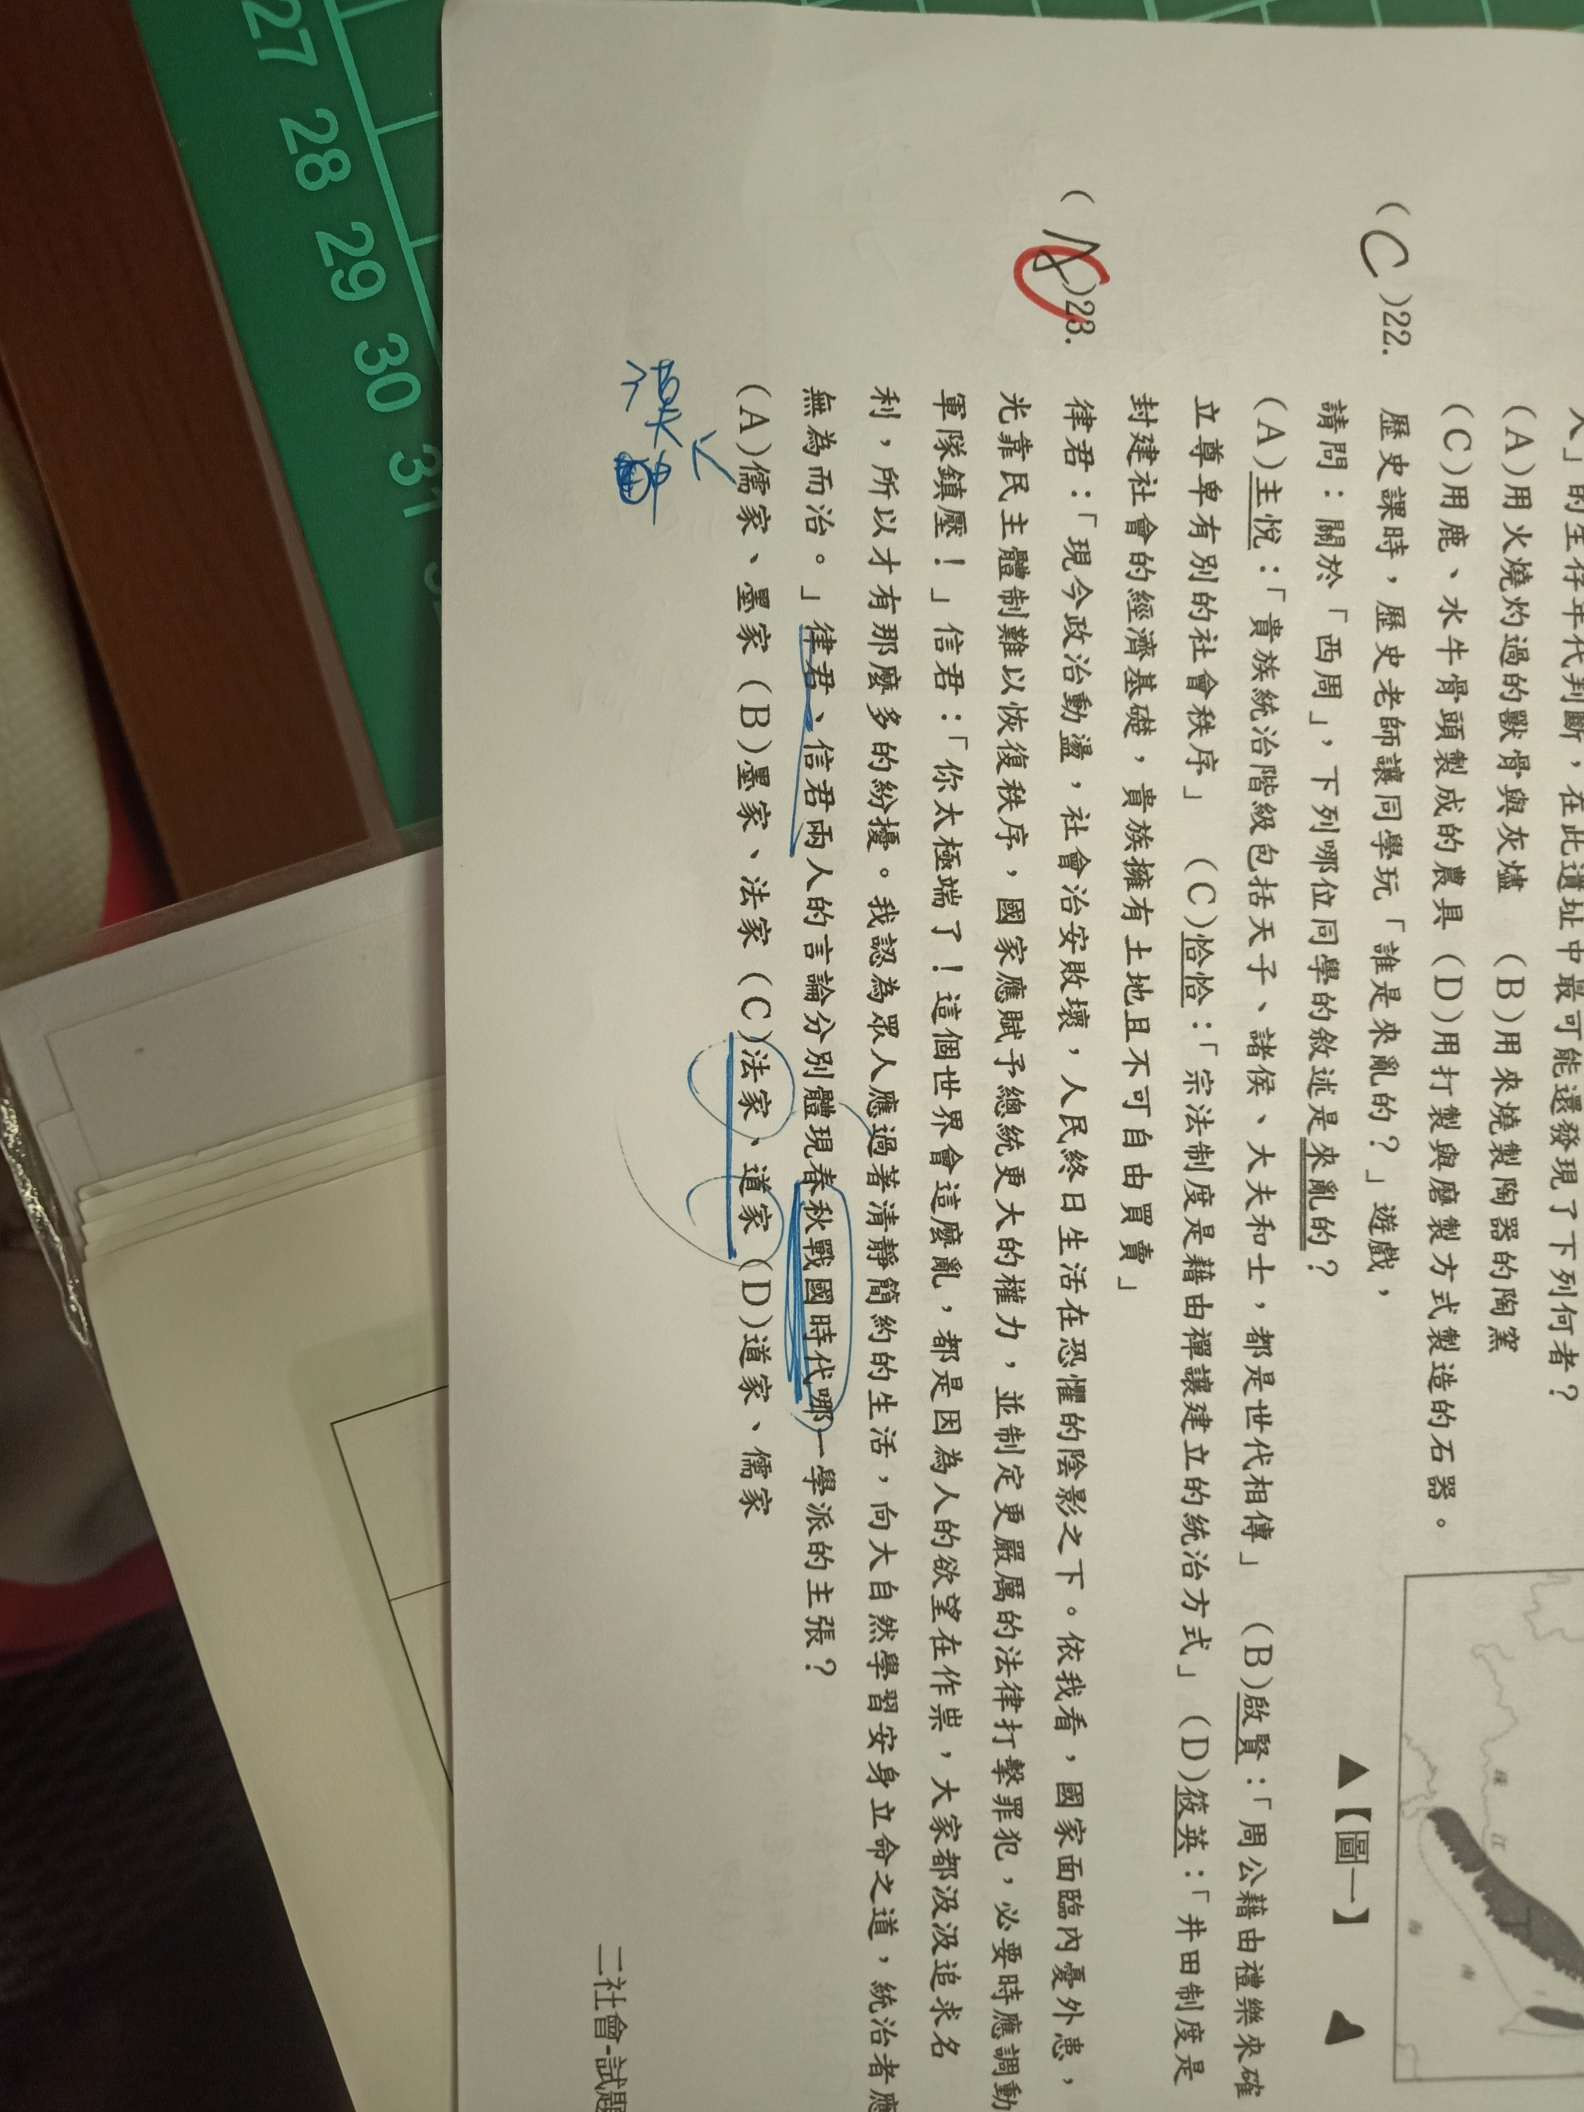 人」的生存年代判斷，在此遺址中最可能還發現了下列何者？
(A)用火燒灼過的獸骨與灰燼　(B)用來燒製陶器的陶窯
(C)用鹿、水牛骨頭製成的農具 (D)用打製與磨製方式製造的石器。
(C)22. 歷史課時，歷史老師讓同學玩「誰是來亂的？」遊戲，
請問：關於「西周」，下列哪位同學的敘述是來亂的？
(A)主悅：「貴族統治階級包括天子、諸侯、大夫和士，都是世代相傳」　(B)啟賢：「周公藉由禮樂來確
立尊卑有別的社會秩序」　(C)恰恰：「宗法制度是藉由禪讓建立的統治方式」 (D)筱英：「井田制度是
封建社會的經濟基礎，貴族擁有土地且不可自由買賣」
( )23. 律君：「現今政治動盪，社會治安敗壞，人民終日生活在恐懼的陰影之下。依我看，國家面臨內憂外患，
光靠民主體制難以恢復秩序，國家應賦予總統更大的權力，並制定更嚴厲的法律打擊罪犯，必要時應調動
軍隊鎮壓！」信君：「你太極端了！這個世界會這麼亂，都是因為人的欲望在作祟，大家都汲汲追求名
利，所以才有那麼多的紛擾。我認為眾人應過著清靜簡約的生活，向大自然學習安身立命之道，統治者應
無為而治。」律君、信君兩人的言論分別體現春秋戰國時代哪一學派的主張？
(A)儒家、墨家 (B)墨家、法家 (C)法家、道家 (D)道家、儒家
▲【圖一】
珠
江
南
海
二社會-試題
27
28
29
30
31